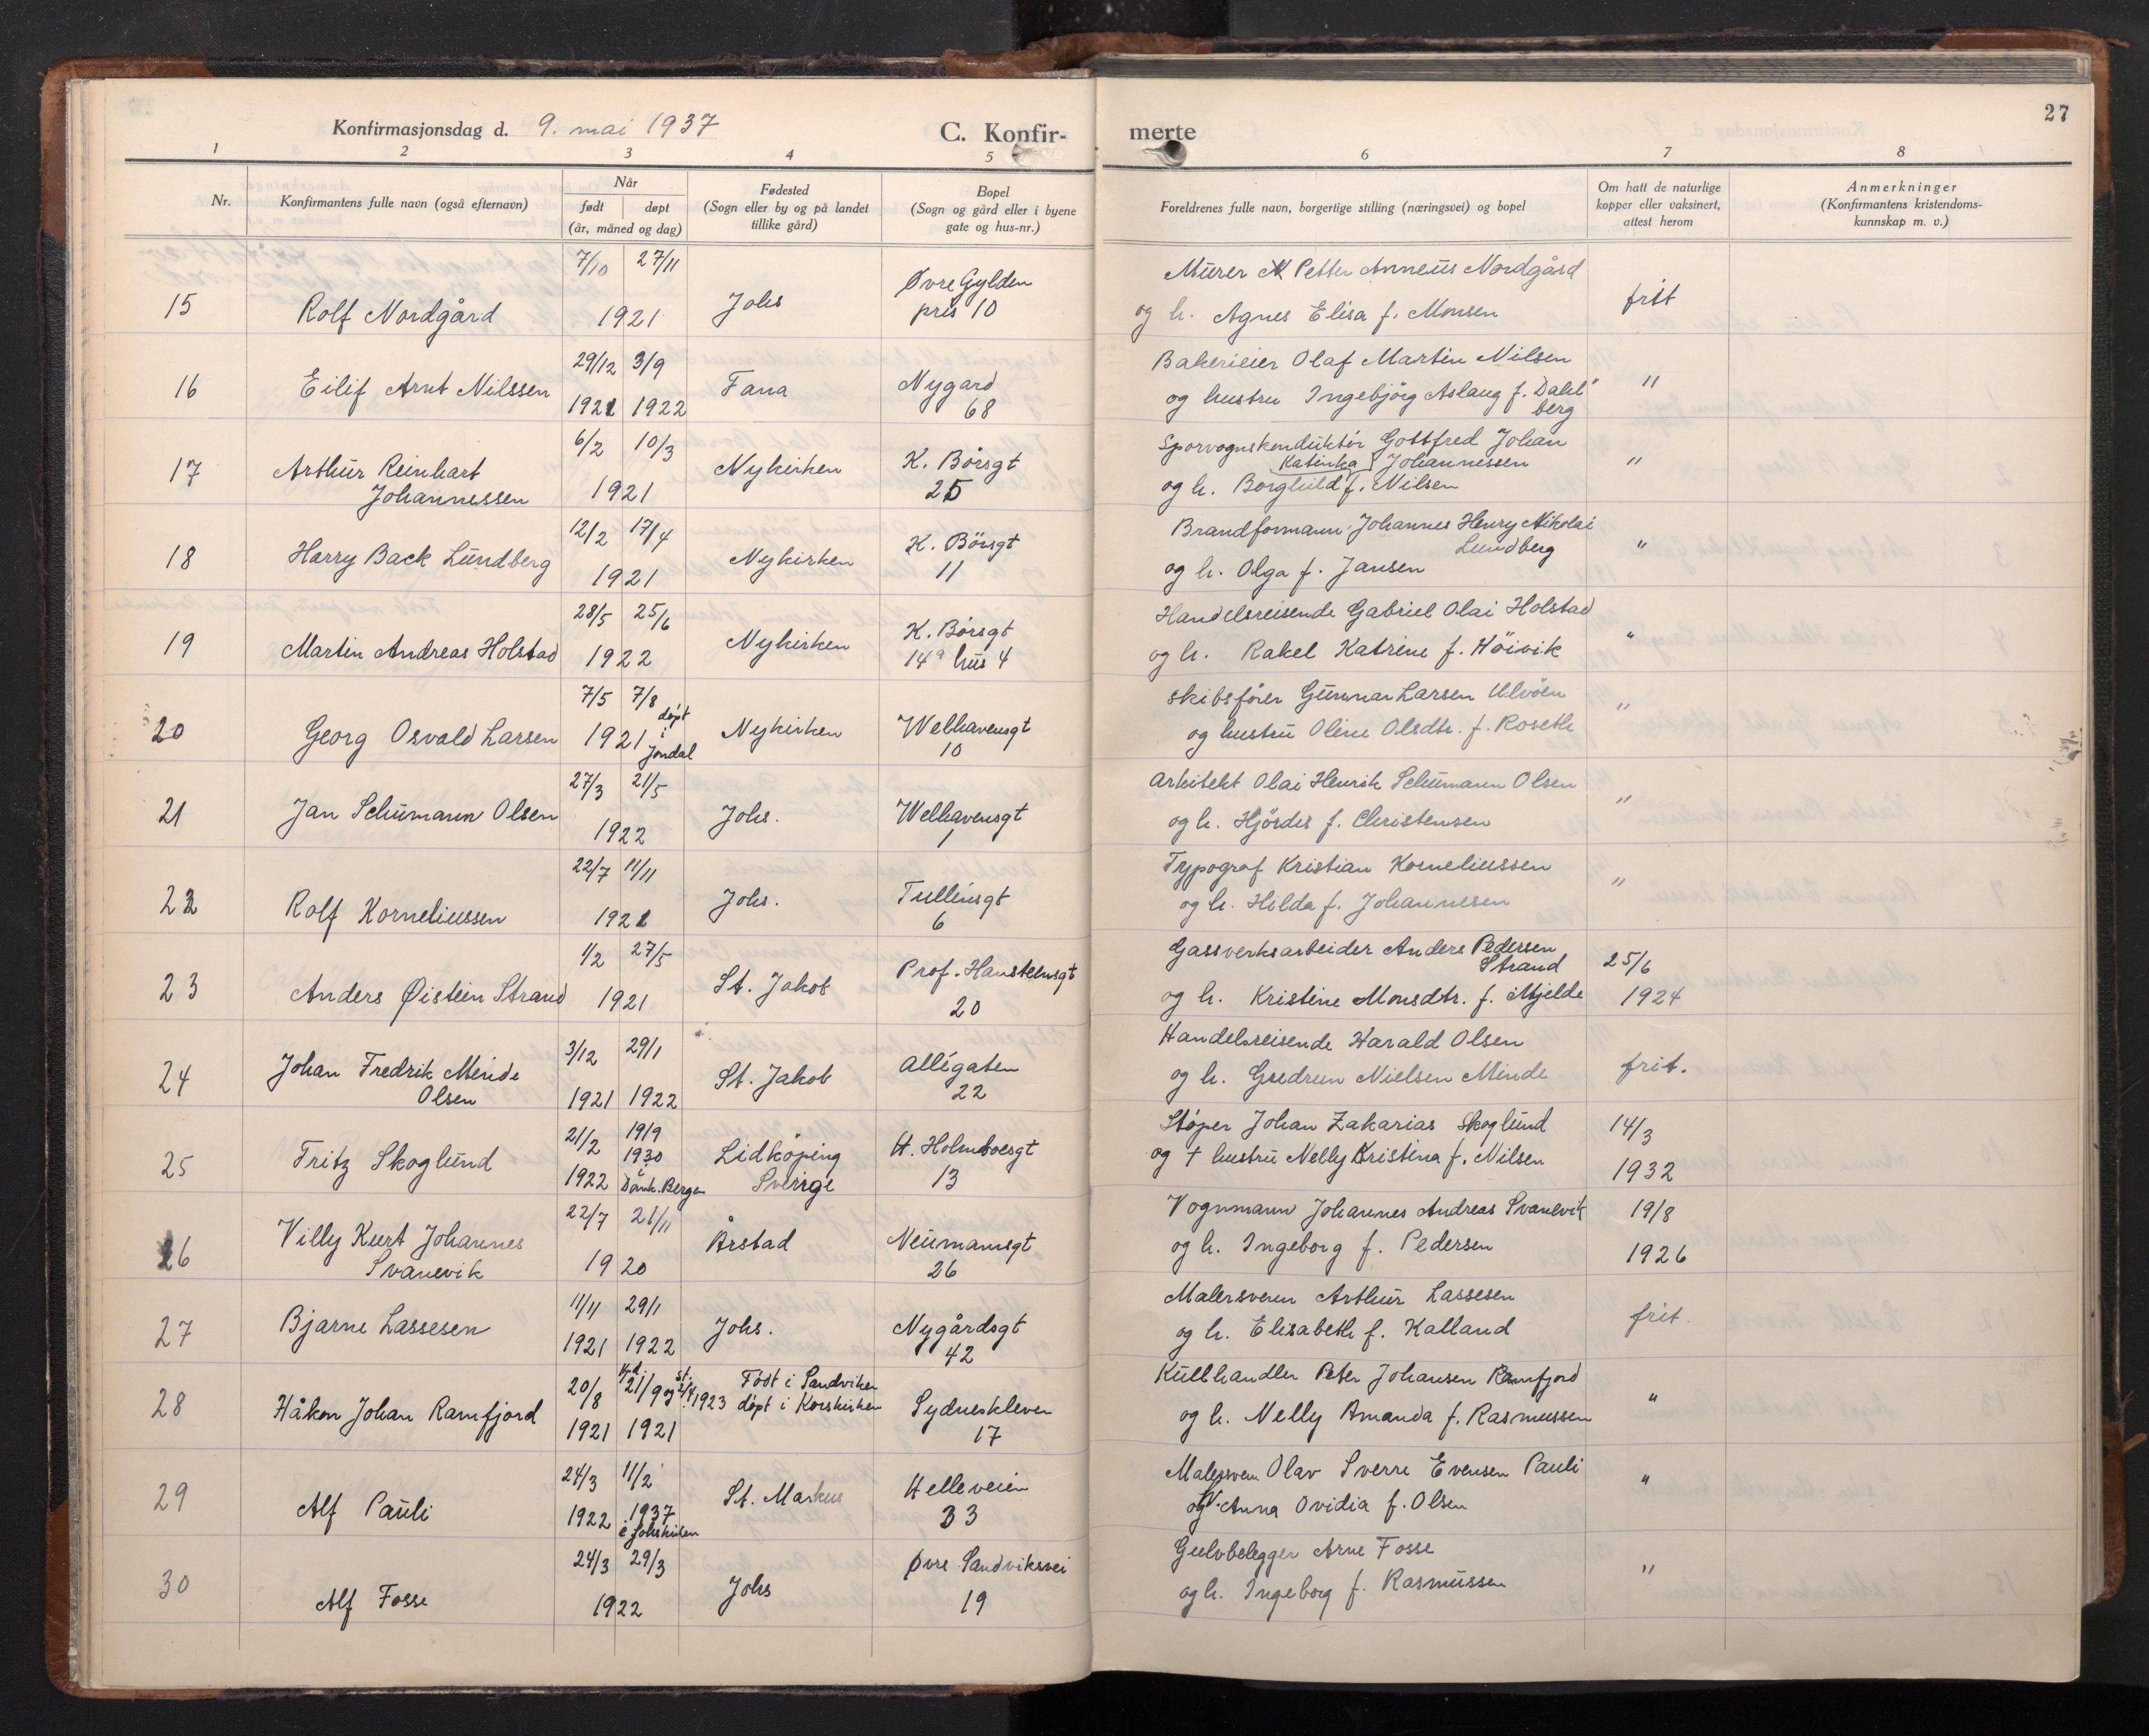 27
Konfirmasjonsdag d. 9. mai 1937
C. Konfir-
merte
1 2 3 4 5 6 7 8
Nr.
Konfirmantens fulle navn (også efternavn)
Når
født døpt
(år, måned og dag)
Fødested
(Sogn eller by og på landet
tillike gård)
Bopel
(Sogn og gård eller i byene
gate og hus-nr.)
Foreldrenes fulle navn, borgerlige stilling (næringsvei) og bopel
Om hatt de naturlige
kopper eller vaksinert,
attest herom
Anmerkninger
(Konfirmantens kristendoms-
kunnskap m. v.)
7/10 27/11 Øvre Gylden Murer Petter Anneus Nordgård
15 Rolf Nordgård 1921 Johs pris 10 og h. Agnes Elisa f. Monsen frit
29/12 3/9 Bakerieier Olaf Martin Nilsen
16 Eilif Arnt Nilssen 1921 1922 Fana Nygård 68 og hustru Ingebjörg Aslaug f. Dahl " "
berg
6/2 10/3 Sporvognskonduktör Gottfred Johan
17 Arthur Reinhart Nykirken K. Börsgt Katinka Johannessen "
Johannessen 1921 25 og h. Borghild f. Nilsen
12/2 17/4 K. Börsgt Brandformann Johannes Henry Nikolai
18 Harry Back Lundberg 1921 Nykirken 11 Lundberg "
og h. Olga f. Jansen
28/5 25/6 K. Börsgt Handelsreisende Gabriel Olai Holstad
19 Martin Andreas Holstad 1922 Nykirken 14a hus 4 og h. Rakel Katrine f. Höivik "
7/5 7/8 døpt i Jondal Skibsförer Gunnar Larsen Ulvöen
20 Georg Osvald Larsen 1921 Nykirken Welhavensgt 10 og hustru Oline Olsdtr. f. Roseth "
27/3 21/5 Arkitekt Olai Henrik Schumann Olsen
21 Jan Schumann Olsen 1922 Johs. Welhavensgt 1 og h. Hjördis f. Christensen "
22/7 11/11 Typograf Kristian Korneliussen
22 Rolf Korneliussen 1921 Johs. Tullinsgt 6 og h. Hilda f. Johannesen "
1/2 27/5 Prof. Hansteensgt Gassverksarbeider Anders Pedersen
Strand 25/6
23 Anders Øistein Strand 1921 St. Jakob 20 og h. Kristine Monsdtr. f. Mjelde 1924
3/12 29/1 Allégaten Handelsreisende Harald Olsen
24 Johan Fredrik Minde St. Jakob 22 og h. Gudrun Nielsen Minde frit.
Olsen 1921 1922
21/2 19/9 1930 i Støper Johan Zakarias Skoglund 14/3
25 Fritz Skoglund 1922 Domk. Bergen Lidköping Sverige H. Holmboesgt 13 og † hustru Nelly Kristina f. Nilsen 1932
22/7 21/11 Vognmann Johannes Andreas Svanevik 19/8
26 Villy Kurt Johannes Årstad Neumannsgt og h. Ingeborg f. Pedersen
Svanevik 1920 26 1926
11/11 29/1 Malersvenn Arthur Lassesen
27 Bjarne Lassesen 1921 1922 Johs. Nygårdsgt 42 og h. Elisabeth f. Kalland frit.
20/8 21/9 1923 Født i Sandviken Kullhandler Peter Johansen Ramfjord
28 Håkon Johan Ramfjord døpt i Korskirken Sydneskleven og h. Nelly Amanda f. Rasmussen "
1921 1921 17
24/3 11/2 Helleveien Malersvenn Olav Sverre Evensen Pauli
29 Alf Pauli 1922 1937 St. Markus 33 og Anna Ovidia f. Olsen "
i Johskirken
24/3 29/3 Øvre Sandviksvei Gulvbelegger Arne Fosse
30 Alf Fosse 1922 Johs 19 og h. Ingeborg f. Rasmussen "